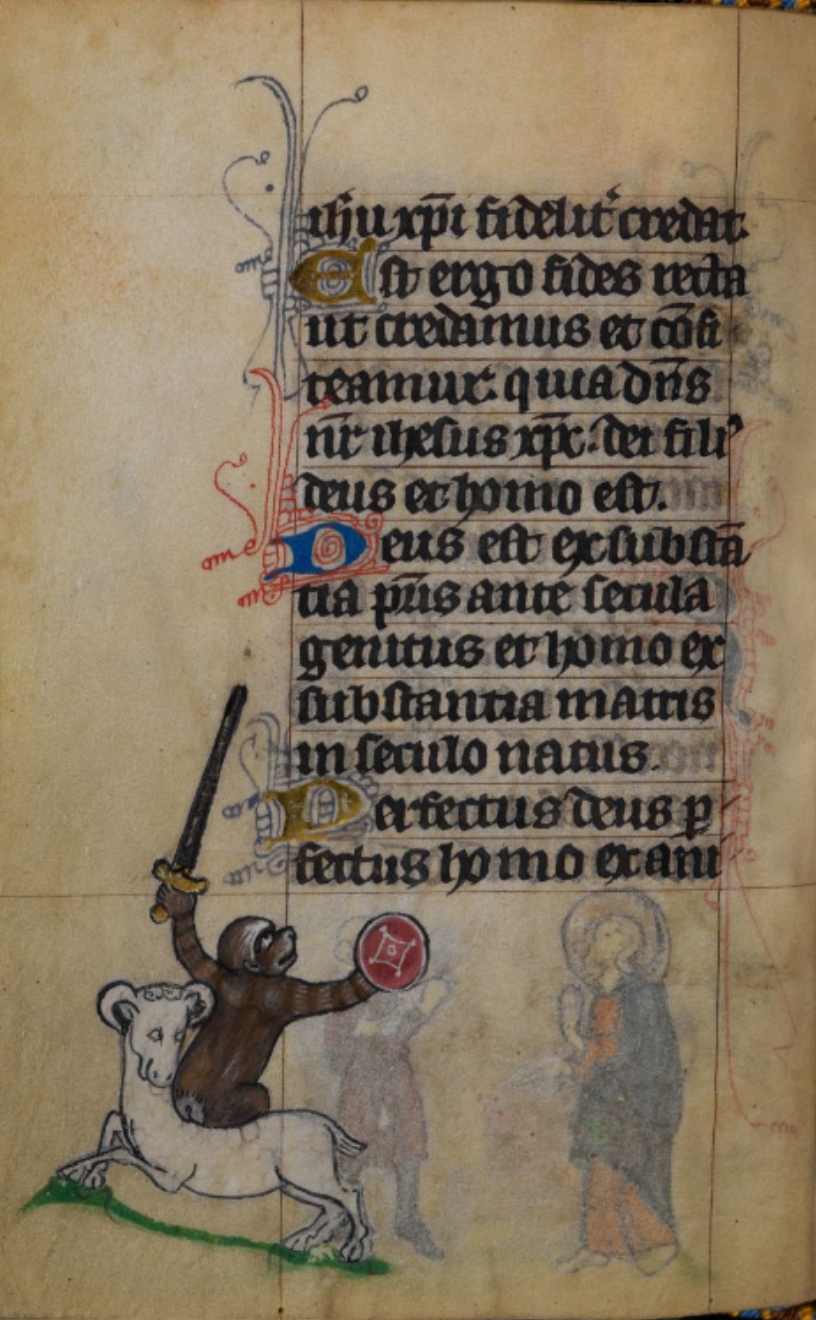 ihu xp̄i fidelit᷑ credat.
Est ergo fides recta
ut credamus et cōfi
teamur. quia dn̄s
nr̄ ihesus xp̄c. dei fili᷒
deus et homo est.
Deus est ex substā
tia pr̄is ante secula
genitus et homo ex
substantia matris
in seculo natus.
Perfectus deus ꝑ
fectus homo ex ani